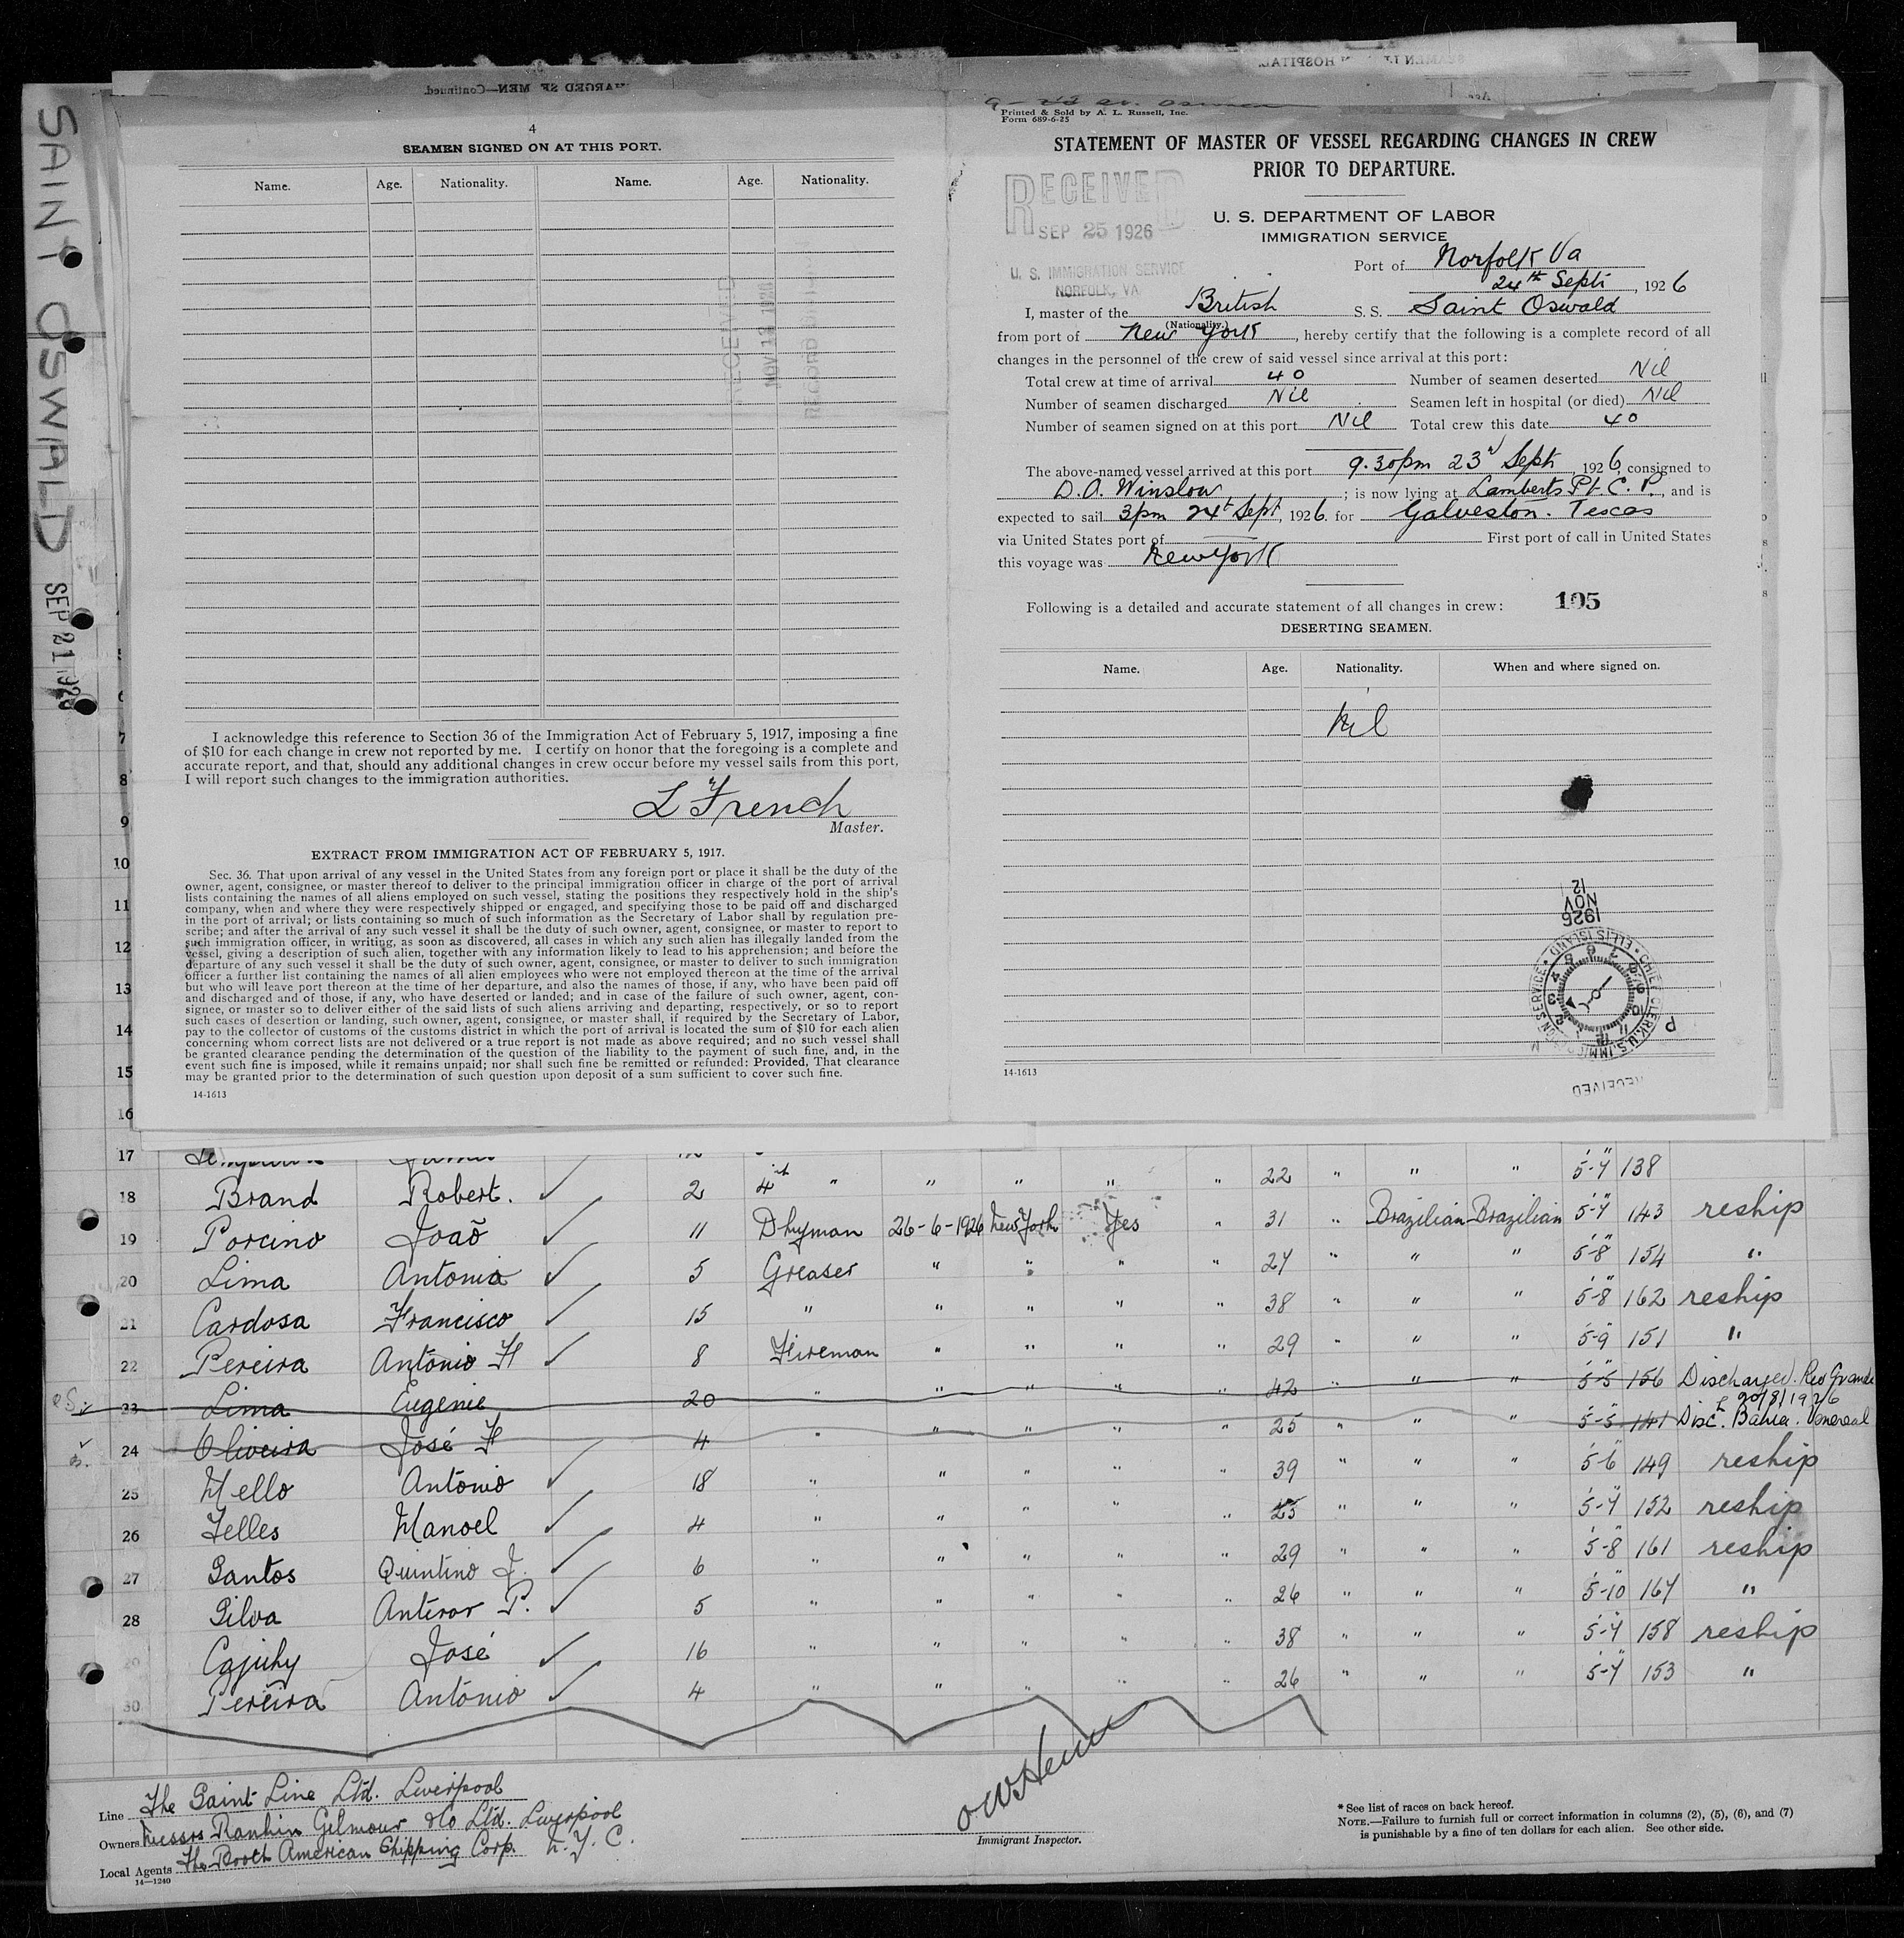 SAINT OSWALD SEP 21 1926
4
SEAMEN SIGNED ON AT THIS PORT.
Name. Age. Nationality. Name. Age. Nationality.
I acknowledge this reference to Section 36 of the Immigration Act of February 5, 1917, imposing a fine
of $10 for each change in crew not reported by me. I certify on honor that the foregoing is a complete and
accurate report, and that, should any additional changes in crew occur before my vessel sails from this port,
I will report such changes to the immigration authorities.
L French
Master.
EXTRACT FROM IMMIGRATION ACT OF FEBRUARY 5, 1917.
Sec. 36. That upon arrival of any vessel in the United States from any foreign port or place it shall be the duty of the
owner, agent, consignee, or master thereof to deliver to the principal immigration officer in charge of the port of arrival
lists containing the names of all aliens employed on such vessel, stating the positions they respectively hold in the ship's
company, when and where they were respectively shipped or engaged, and specifying those to be paid off and discharged
in the port of arrival; or lists containing so much of such information as the Secretary of Labor shall by regulation pre-
scribe; and after the arrival of any such vessel it shall be the duty of such owner, agent, consignee, or master to report to
such immigration officer, in writing, as soon as discovered, all cases in which any such alien has illegally landed from the
vessel, giving a description of such alien, together with any information likely to lead to his apprehension; and before the
departure of any such vessel it shall be the duty of such owner, agent, consignee, or master to deliver to such immigration
officer a further list containing the names of all alien employees who were not employed thereon at the time of the arrival
but who will leave port thereon at the time of her departure, and also the names of those, if any, who have been paid off
and discharged and of those, if any, who have deserted or landed; and in case of the failure of such owner, agent, con-
signee, or master so to deliver either of the said lists of such aliens arriving and departing, respectively, or so to report
such cases of desertion or landing, such owner, agent, consignee, or master shall, if required by the Secretary of Labor,
pay to the collector of customs of the customs district in which the port of arrival is located the sum of $10 for each alien
concerning whom correct lists are not delivered or a true report is not made as above required; and no such vessel shall
be granted clearance pending the determination of the question of the liability to the payment of such fine, and, in the
event such fine is imposed, while it remains unpaid; nor shall such fine be remitted or refunded: Provided, That clearance
may be granted prior to the determination of such question upon deposit of a sum sufficient to cover such fine.
14-1613
Printed & Sold by A. L. Russell, Inc.
Form 689-6-25
STATEMENT OF MASTER OF VESSEL REGARDING CHANGES IN CREW
PRIOR TO DEPARTURE.
RECEIVED
SEP 25 1926
U. S. IMMIGRATION SERVICE
NORFOLK, VA.
U. S. DEPARTMENT OF LABOR
IMMIGRATION SERVICE
Port of Norfolk Va
24th Septr, 1926
I, master of the British S. S. Saint Oswald
(Nationality.)
from port of New York, hereby certify that the following is a complete record of all
changes in the personnel of the crew of said vessel since arrival at this port:
Total crew at time of arrival 40 Number of seamen deserted Nil
Number of seamen discharged Nil Seamen left in hospital (or died) Nil
Number of seamen signed on at this port Nil Total crew this date 40
The above-named vessel arrived at this port 9.30pm 23d Septr, 1926, consigned to
D.A. Winslow; is now lying at Lamberts Pt C. P., and is
expected to sail 3pm 24th Sept, 1926. for Galveston. Texas
via United States port of First port of call in United States
this voyage was New York
Following is a detailed and accurate statement of all changes in crew: 105
DESERTING SEAMEN.
Name. Age. Nationality. When and where signed on.
Nil
1926 NOV 12
CHIEF CLERK, U.S. IMMIGRATION SERVICE • ELLIS ISLAND
RECEIVED
14-1613
7
8
9
10
11
12
13
14
15
16
17
18 Brand Robert. ✓ 2 4th " " " " " 22 " " " 5'-7" 138
19 Porcino Joaõ ✓ 11 Dkyman 26-6-1926 New York Yes " 31 " Brazilian Brazilian 5'-7" 143 reship
20 Lima Antonio ✓ 5 Greaser " " " " 27 " " " 5'-8" 154 "
21 Cardosa Francisco ✓ 15 " " " " " 38 " " " 5'-8" 162 reship
22 Pereira Antonio F ✓ 8 Fireman " " " " 29 " " " 5'-9" 151 "
23 Lima Eugenie 20 " " " " " 42 " " " 5'-5" 156 Discharged. Rio Grande 20/8/1926
24 Oliveira José F 4 " " " " " 25 " " " 5'-5" 141 Disc. Bahia. Venereal
25 Mello Antonio ✓ 18 " " " " " 39 " " " 5'-6" 149 reship
26 Telles Manoel ✓ 4 " " " " " 25 " " " 5'-7" 152 reship
27 Santos Quintino J. ✓ 6 " " " " " 29 " " " 5'-8" 161 reship
28 Silva Anteror P. ✓ 5 " " " " " 26 " " " 5'-10" 167 "
29 Cajuhy José ✓ 16 " " " " " 38 " " " 5'-7" 158 reship
30 Pereira Antonio ✓ 4 " " " " " 26 " " " 5'-7" 153 "
Line The Saint Line Ltd. Liverpool
Owners Messrs Rankin Gilmour & Co Ltd. Liverpool
Local Agents The Booth American Shipping Corp. N. Y. C.
14-1240
Immigrant Inspector.
* See list of races on back hereof.
NOTE.—Failure to furnish full or correct information in columns (2), (5), (6), and (7)
is punishable by a fine of ten dollars for each alien. See other side.